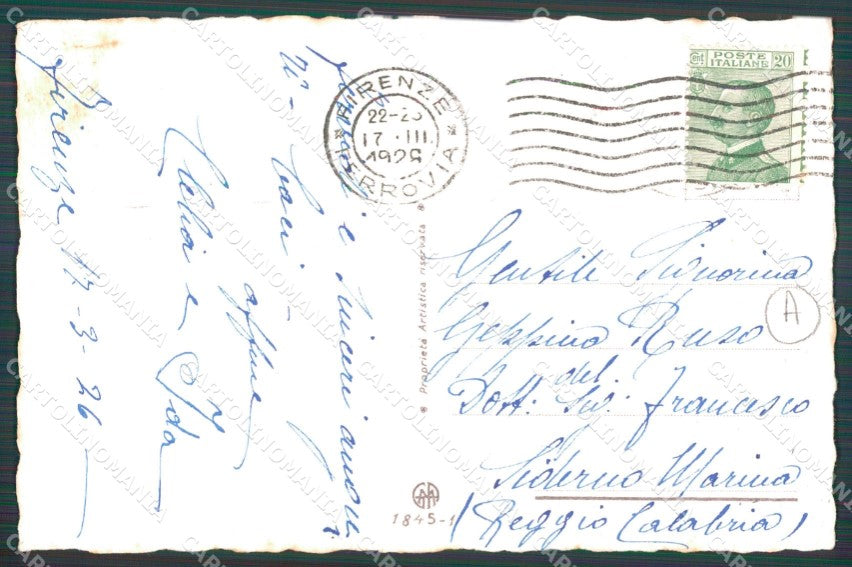 Firenze 17-3-26
Sinceri auguri
baci
affme
Clelia e Ida
FIRENZE
22-23
17 · III
1926
FERROVIA
cent POSTE ITALIANE 20
Proprietà Artistica riservata
1845-1
Gentile Signorina
Geppina Ruso
del
Dott: Sig. Francesco
Siderno Marina
(Reggio Calabria)
A
CARTOLINOMANIA